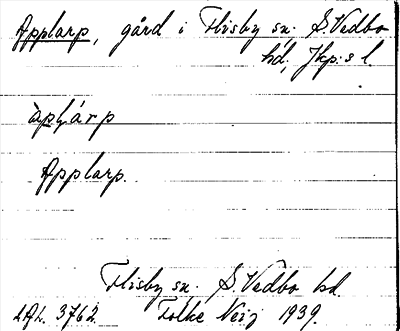 Applarp, gård i Flisby sn. S. Vedbo
hd, Jkp:s l.
àpḷárp
Applarp.
Flisby sn. S. Vedbo hd.
LAL. 3762. Folke Neij 1939.